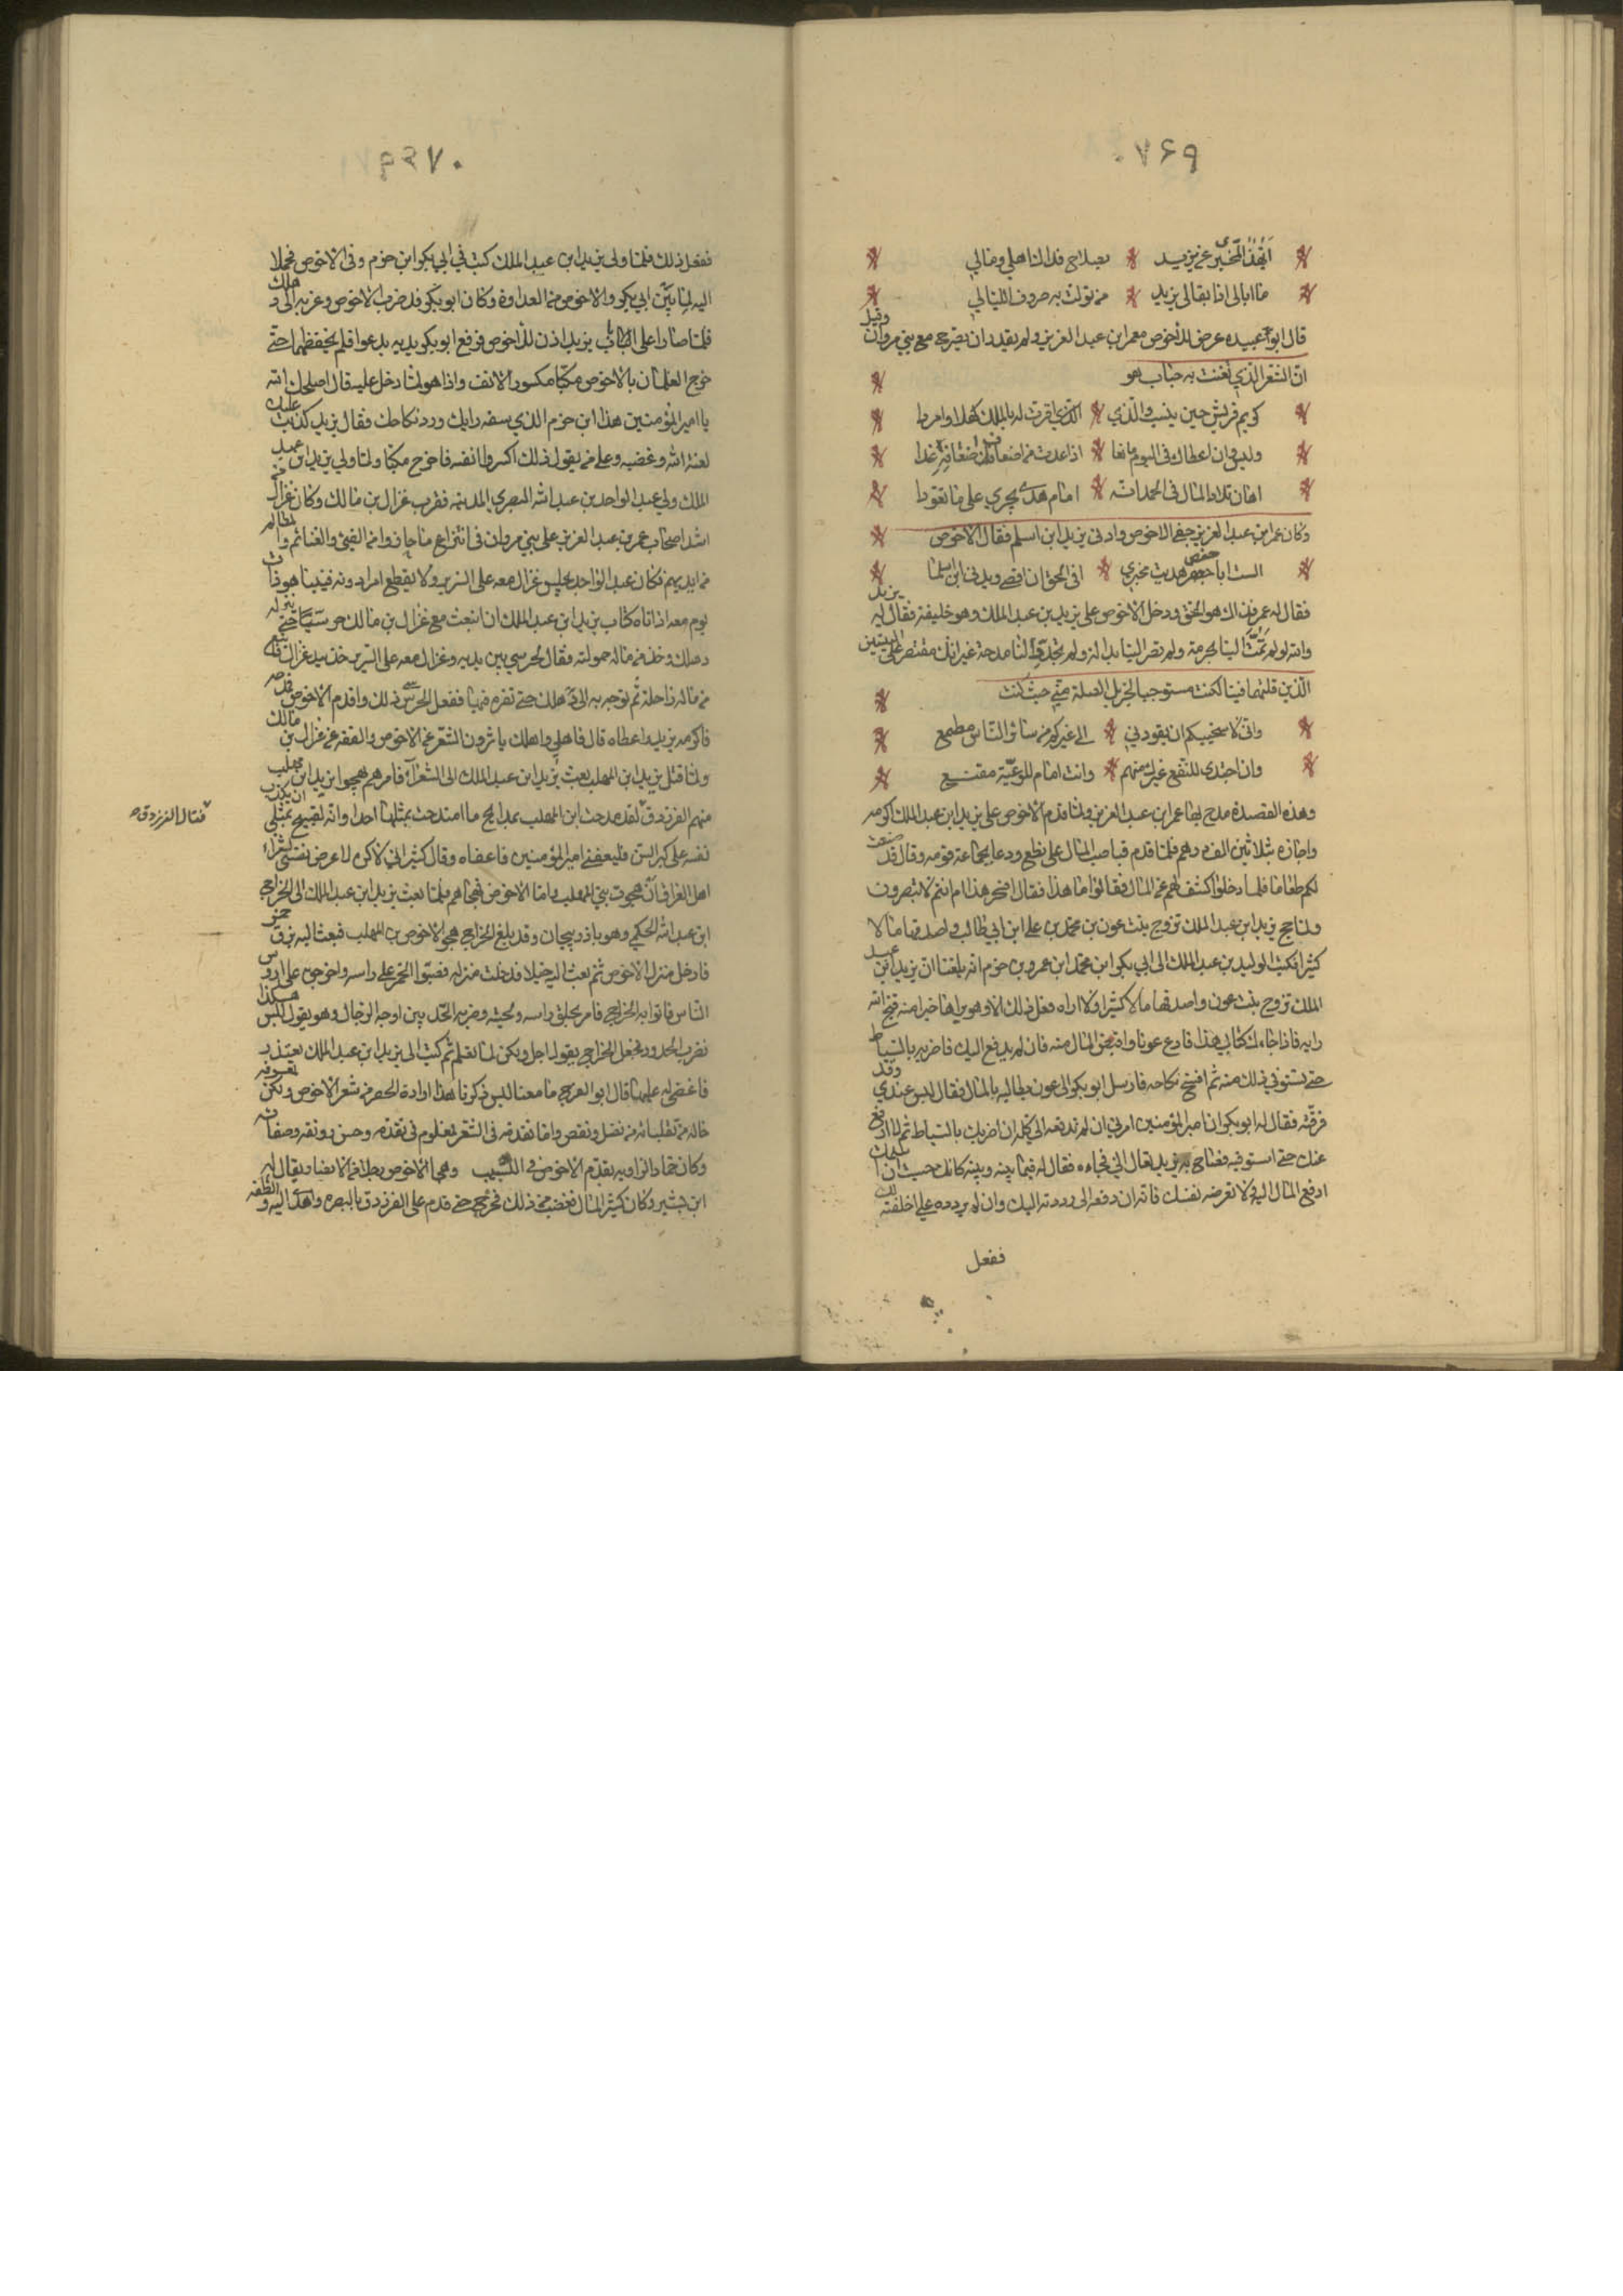 ٧٦٩
أيهذا المخبري عن يزيد * بصلاح فداك اهلي ومالي
ما ابالي اذا بقا لي يزيد * من تولت به صروف الليالي
قال ابو عبيده عرض الاخوص بعمر ابن عبد العزيز ولم يقدر ان يصرح مع بني مروان وقيل
ان الشعر الذي تغنت به حبابه هو
كريم قريش حين ينسب والذي * اقرت له بالملك كهلا وامردا
وليس وان اعطاك في اليوم مانعا * اذا عدت من اضعاف اضعافه غدا
اهان تلاد المال في الحمد انه * امام هدى يجري على ما تعودا
وكان عمر ابن عبد العزيز جفى الاخوص وادنى يزيد ابن اسلم فقال الاخوص
الست ابا حفص هديت مخبري * افي الحق ان اقصى ويدنى ابن اسلما
فقال له عمر ذاك هو الحق ودخل الاخوص على يزيد بن عبد الملك وهو خليفة فقال له يزيد
والله لو لم تمت الينا بحرمة ولم تضر الينا بدالة ولم تجدد لنا مدحة غير انك مقتصر على البيتين
الذين قلتهما فينا لكنت مستوجبا لجزيل الصلة مني حيث قلت
واني لاستحييكم ان يقودني * الى غيركم من سائر الناس مطمع
وان اجتدي للنفع غيرك منهم * وانت امام للرعية مقنع
وهذه القصيدة مدح بها عمر ابن عبد العزيز ولما قدم الاخوص على يزيد ابن عبد الملك اكرمه
واجازه بثلاثين الف درهم فلما قدم قبا صب المال على نطع ودعا بجماعة قومه وقال قد صنعت
لكم طعاما فلما دخلوا كشف لهم عن المال فقالوا ما هذا فقال افسحر هذا ام انتم لا تبصرون
ولما حج يزيد ابن عبد الملك تزوج بنت عون بن محمد بن علي ابن ابي طالب واصدقها مالا
كثيرا فكتب الوليد بن عبد الملك الى ابي بكر ابن محمد ابن عمرو بن حزم انه بلغنا ان يزيد ابن عبد
الملك تزوج بنت عون واصدقها مالا كثيرا ولا اراه فعل ذلك الا وهو يراها خيرا منه قبح الله
رايه فاذا جاءك كتابي هذا فادع عونا واقبض المال منه فان لم يدفع اليك فاضربه بالسياط
حتى تستوفي ذلك منه ثم افسخ نكاحه فارسل ابو بكر الى عون بطالبه بالمال فقال ليس عندي وقد
فرقته فقال له ابو بكر ان امير المؤمنين امرني ان لم تدفعه الي كله ان اضربك بالسياط ثم لا ارفع
عنك حتى استوفيه فصاح به يزيد تعال الي فجاءه فقال له فيما بينه وبينه كانك خشيت ان اسلمك
ادفع المال اليه ولا تعرض نفسك فانه ان دفعه الي رددته اليك وان لم يرده علي اخلفته لك
ففعل
٧٧٠
ففعل ذلك فلما ولى يزيد ابن عبد الملك كتب في ابي بكر ابن حزم وفي الاخوص فحملا
اليه لما بين ابي بكر والاخوص من العداوة وكان ابو بكر قد ضرب الاخوص وغربه الى دهلك
فلما صارا على باب يزيد اذن للاخوص فرفع ابو بكر يديه يدعوا فلم يخفضهما حتى
خرج الغلمان بالاخوص مكبا مكسور الانف واذا هو لما دخل عليه قال اصلحك الله
يا امير المؤمنين هذا ابن حزم الذي سفه رايك ورد نكاحك فقال يزيد كذبت عليك
لعنة الله وغضبه وعلى من يقول ذلك اكسروا انفه فاخرج مكبا ولما ولي يزيد ابن عبد
الملك ولي عبد الواحد بن عبد الله النصري المدينه فقرب عراك بن مالك وكان عراك من
اشد اصحاب عمر بن عبد العزيز على بني مروان في انتزاع ما حازوا من الفيء والغنائم والمظالم
من ايديهم فكان عبد الواحد يجلس عراك معه على السرير ولا يقطع امرا دونه فبينا هو ذات
يوم معه اذ اتاه كتاب يزيد ابن عبد الملك ان ابعث مع عراك بن مالك حرسيا حتى ينزله
دهلك وخذ من ماله حمولته فقال لحرسي بين يديه وعراك معه على السرير خذ بيد عراك فابتع
من ماله راحلة ثم توجه به الى دهلك حتى تقره فيها ففعل الحرسي ذلك واقدم الاخوص
فاكرمه يزيد واعطاه قال فاهل دهلك ياثرون الشعر عن الاخوص والفقه عن عراك بن مالك
ولما قتل يزيد ابن المهلب بعث يزيد ابن عبد الملك الى الشعراء فامرهم بهجوا يزيد ابن مهلب
منهم الفرزدق لقد مدحت ابن المهلب بمدايح ما امتدحت بمثلها احدا وانه لقبيح بمثلي ان يكذب
نفسه على كبر السن فليعفني امير المؤمنين فاعفاه وقال كثير اني لاكره ان اعرض نفسي لشعراء
اهل العراق ان هجوت بني المهلب واما الاخوص فهجاهم ولما بعث يزيد ابن عبد الملك الى الجراح
ابن عبد الله الحكمي وهو باذربيجان وقد بلغ الجراح هجو الاخوص بن المهلب فبعث اليه بزق خمر
فادخل منزل الاخوص ثم بعث اليه خيلا فدخلت منزله فصبوا الخمر على راسه واخرجوه على رؤس
الناس فاتوا به الجراح فامر بحلق راسه ولحيته وضربه الحد بين اوجه الرجال وهو يقول ليس هكذا
تضرب الحدود فجعل الجراح يقول اجل ولكن لما تعلم ثم كتب الى يزيد ابن عبد الملك يعتذر
فاغضى له عليها قال ابو الفرج ما معنا ليس ذكرنا هذا ارادة الحصر من شعر الاخوص ولكن لتعرفه
حاله من تقلباته من تفضل ونقص واما تقدمه في الشعر معلوم في تقدمه وحسن رونقه وصفائه
وكان حماد الراويه يقدم الاخوص في النسيب وهجا الاخوص رجلا من الانصار يقال له
ابن بشير وكان كثير المال فغضب من ذلك فخرج حتى قدم على الفرزدق بالبصره واهدى اليه والطفه
فقال الفرزدق